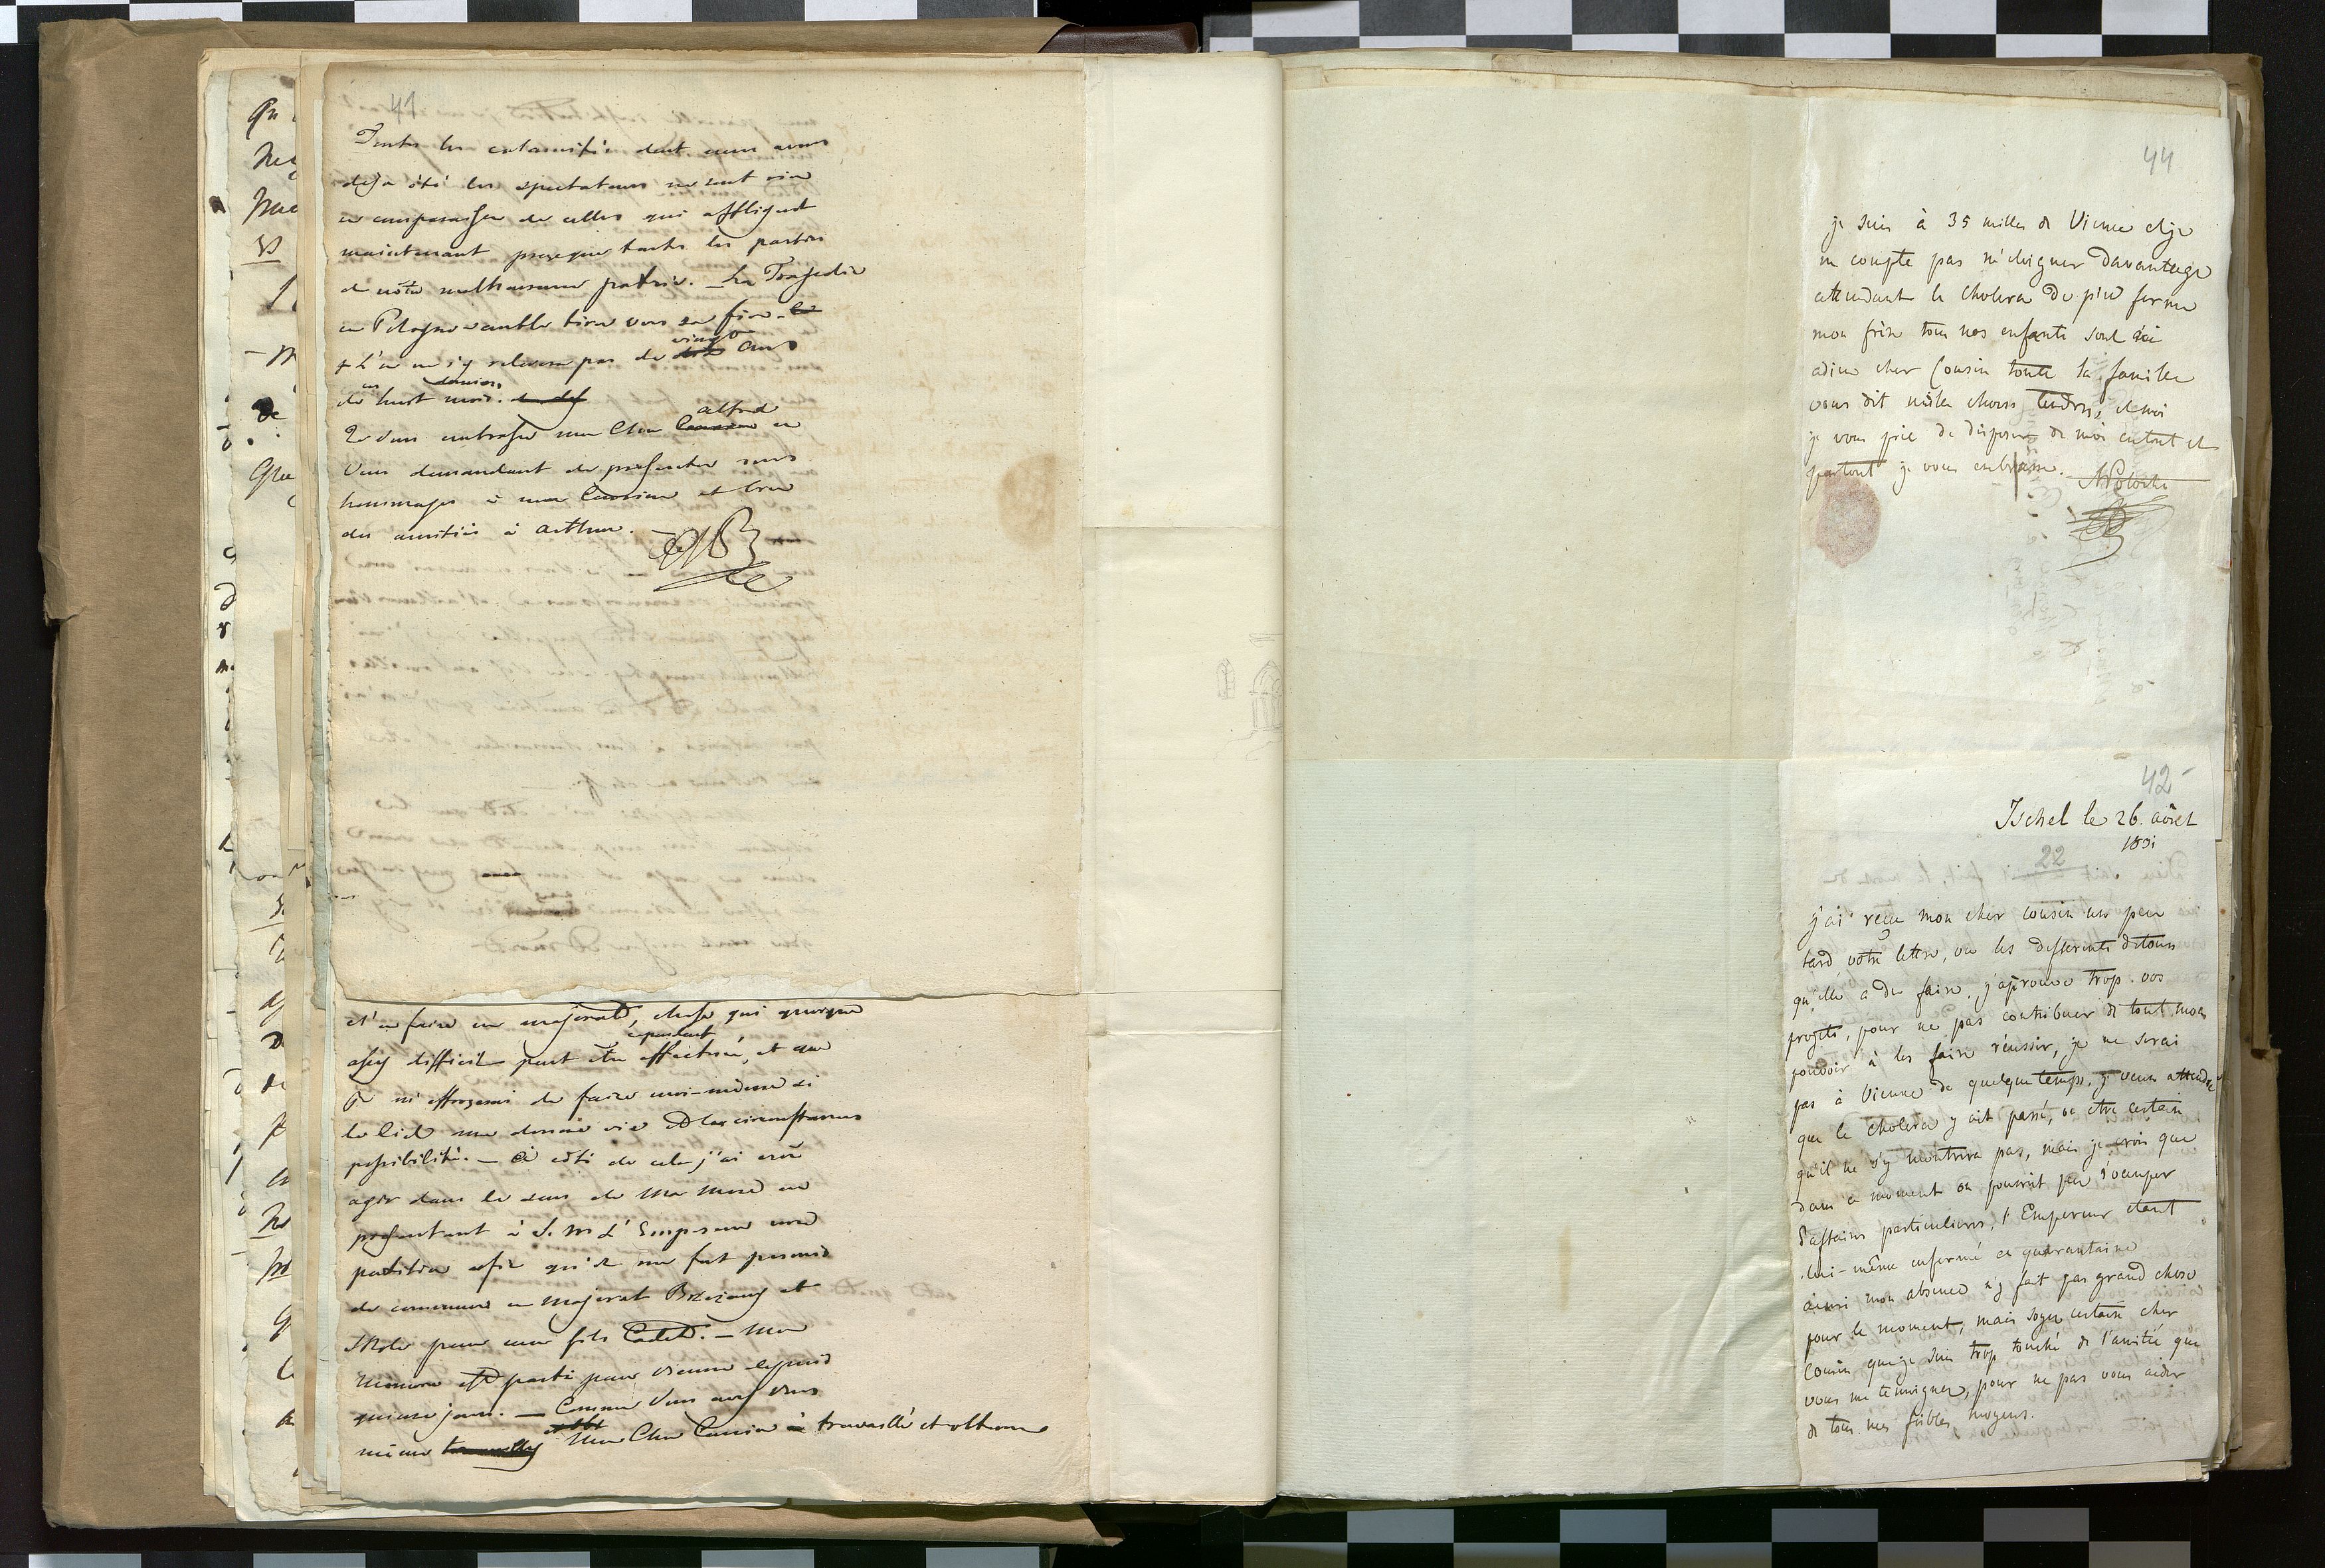 41
Toutes les calamités dont nous avons
deja été les spectateurs ne sont rien
en comparaison de celles qui affligent
maintenant presque toutes les parties
de nôtre malheureuse patrie. — La Tragedie
en Pologne semble tirer vers sa fin. —
L'on ne s'y relevera pas de
vingt ans
de huit mois.
ces derniers
Je vous embrasse mon Cher
Alfred
en
Vous demandant de présenter mes
hommages à ma Cousine et bien
des amitiés à Arthur.
et d'en faire un majorat, chose qui quoique
assez difficile peut
cependant
être effectuée, et que
Je m'efforcerai de faire moi-même si
le Ciel me donne vie et les circonstances
possibilité. — à côté de cela j'ai crû
agir dans le sens de ma mere en
présentant à S. M. L'Empereur une
petition afin qu'il me fut permis
de convertir en Majorat Brzezany et
pour mon fils Cadet. — Mon
memoire est parti pour Vienne depuis
quinze jours. — Comme Vous avez Vous
même
Mon Cher Cousin à travaillé et obtenu
44
je suis à 35 milles de Vienne et je
ne compte pas m'eloigner davantage
attendant le cholera de pied ferme
mon frère tous nos enfants sont ici
adieu cher Cousin toute la famille
vous dit mille choses tendres, et moi
je vous prie de disposer de moi en tout et
partout je vous embrasse.
42
Ischel le 26. aôut
1831
22
j'ai reçu mon cher cousin un peu
tard votre lettre, vu les differents detours
qu'elle a du faire, j'aprouve trop vos
projets, pour ne pas contribuer de tout mon
pouvoir à les faire réussir, je ne serai
pas à Vienne de quelque temps, je veux attendre
que le cholera y ait passé, ou etre certain
qu'il ne s'y montrera pas, mais je crois que
dans ce moment on pourrait peu s'occuper
d'affaires particulieres, l'Empereur etant
lui-même enfermé en quarantaine
ainsi mon absence n'y fait pas grand chose
pour le moment, mais soyez certain cher
Cousin que je suis trop touché de l'amitié que
vous me temoignez, pour ne pas vous aider
de tous mes foibles moyens.